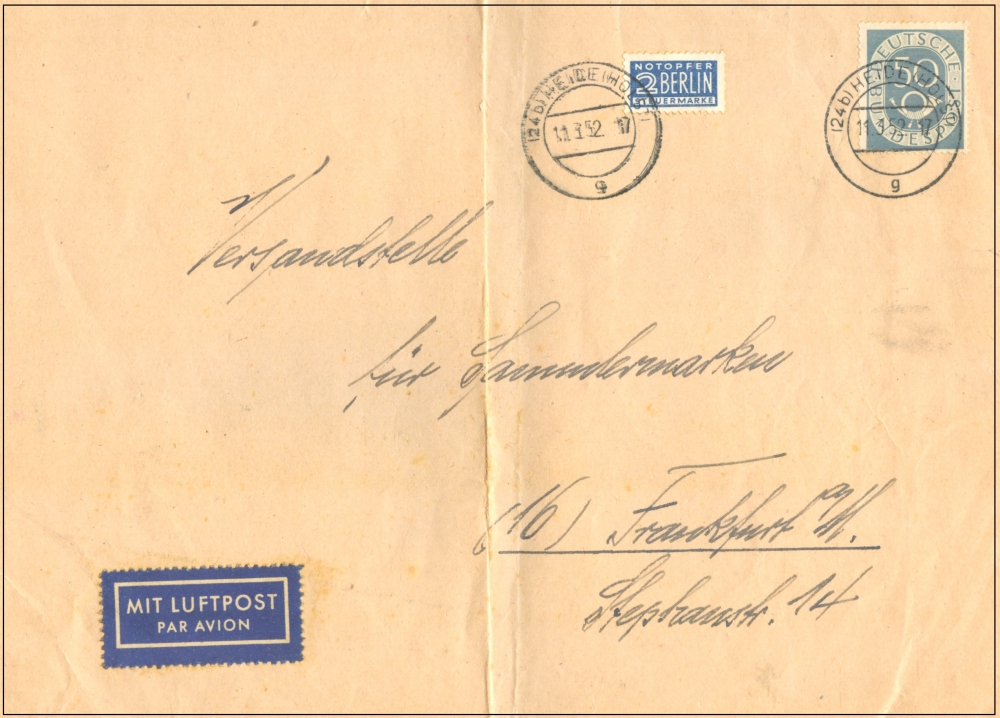 NOTOPFER
2 BERLIN
STEUERMARKE
DEUTSCHE
50
BUNDESPOST
(24b) HEIDE (HOLST)
11.3.52. 17
g
(24b) HEIDE (HOLST)
11.3.52. 17
g
Versandstelle
für Sammlermarken
(16) Frankfurt a/M.
Stephanstr. 14
MIT LUFTPOST
PAR AVION